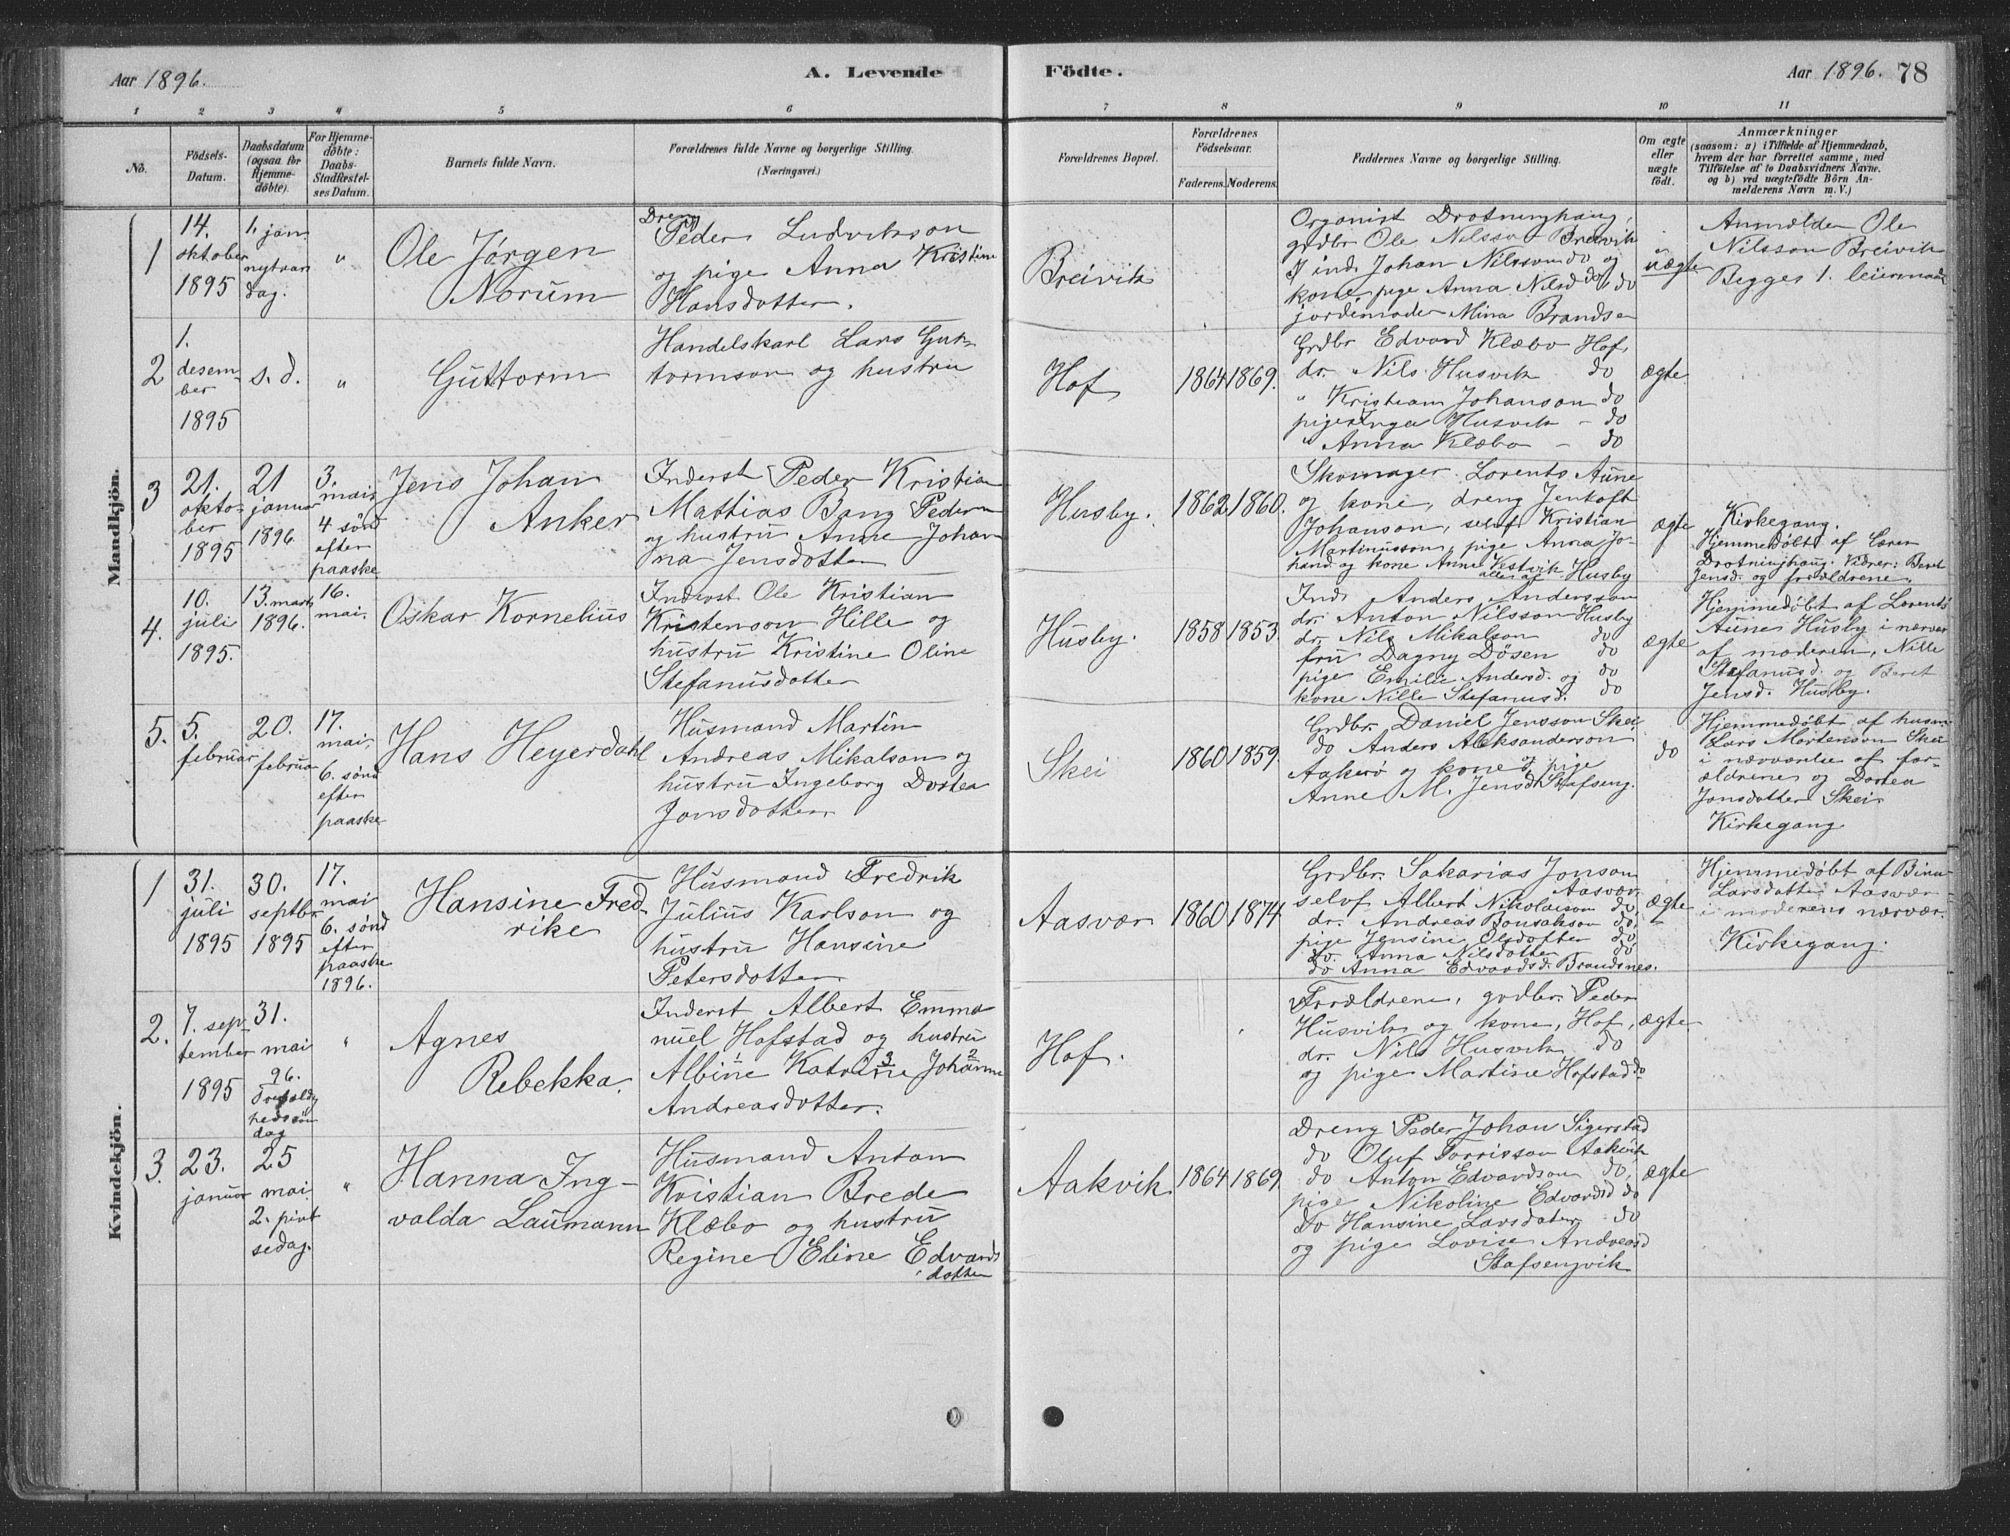 Aar 1896.
A. Levende
Födte.
Aar 1896. 78
1 2 3 4 5 6 7 8 9 10 11
No.
Födsels-
Datum.
Daabsdatum
(ogsaa for
Hjemme-
döbte).
For Hjemme-
döbte:
Daabs-
Stadfæstel-
ses Datum.
Barnets fulde Navn.
Forældrenes fulde Navne og borgerlige Stilling.
(Næringsvei.)
Forældrenes Bopæl.
Forældrenes
Födselsaar.
Faderens. Moderens.
Faddernes Navne og borgerlige Stilling.
Om ægte
eller
uægte
födt.
Anmærkninger
(saasom: a) i Tilfælde af Hjemmedaab,
hvem der har forrettet samme, med
Tilföielse af to Daabsvidners Navne,
og b) ved uægtefödte Börn An-
melderens Navn m. V.)
Mandkjön.
1
14.
oktober
1895
1. jan.
nytaars
dag.
"
Ole Jørgen
Norum
Dreng
Peder Ludvikson
og pige Anna Kristine
Hansdotter.
Breivik
Organist Drotninghaug,
grdbr Ole Nilsson Breivik
ind. Johan Nilsson do og
kone, pige Anna Nilsd do
jordemoder Mina Brandsen
uægte
Anmælder Ole
Nilsson Breivik
Begges 1. leiermaal
2
1.
desem-
ber
1895
s. d.
"
Guttorm
Handelskarl Lars Gut-
tormson og hustru
Hof
1864 1869.
Grdbr Edvard Klæbo Hof,
dr. Nils Husvik do
" Kristian Johanson do
pige Inga Husvik - do
" Anna Klæbo - do
ægte
3
21.
okto-
ber
1895
21
januar
1896
3.
mai,
4 sønd
efter
paaske
Jens Johan
Anker
Inderst Peder Kristian
Mattias Bang Peders
og hustru Anne Johan
na Jensdotter
Husby.
1862 1860.
Skomager Lorents Aune
og kone, dreng Jentoft
Johanson, selvf Kristian
Martinusson, pige Anna Jo-
hand og kone Anne Vestvik
alle af Husby
ægte
Kirkegang.
Hjemmedøbt af Lærer
Drotninghaug. Vidner: Beret
Jensd. og forældrene.
4.
10.
juli
1895.
13. marts
1896.
16.
mai.
Oskar Kornelius
Inderst Ole Kristian
Kristenson Hille og
hustru Kristine Oline
Stefanusdotter
Husby.
1858 1853.
Ind. Anders Andersson
dr. Anton Nilsson Husby
dr. Nils Mikalson do
fru Dagny Døsen do
pige Emilie Andersd. og do
kone Nille Stefanusd. do
ægte
Hjemmedøbt af Lorents
Aune Husby i nærvær
af moderen, Nille
Stefanusd. og Beret
Jensd. Husby.
5.
5.
februar
20.
februar
17.
mai,
6. sønd
efter
paaske
Hans Heyerdahl
Husmand Martin
Andreas Mikalson og
hustru Ingeborg Dortea
Jonsdotter
Skei
1860 1859.
Grdbr. Daniel Jensson Skei
do Anders Aleksanderson
Aakerø og kone og pige
Anne M. Jensd Stafseng.
do
Hjemmedøbt af husm.
Lars Mortenson Skei
i nærværelse af for-
ældrene og Dortea
Jonsdotter Skei.
Kirkegang
Kvindekjön.
1
31.
juli
1895
30.
septbr
1895
17.
mai
6. sønd
efter
paaske
1896.
Hansine Fred-
rike
Husmand Fredrik
Julius Karlson og
hustru Hansine
Petersdotter
Aasvær
1860 1874.
Grdbr. Sakarias Jonson
Aasvær
selvf Albert Nikolaison do,
dr. Andreas Bonsakson do
pige Jensine Olsdotter do,
do Anna Nilsdotter do
do Anna Edvardsd. Brandsnes.
ægte
Hjemmedøbt af Bina
Larsdotter Aasvær
i moderens nærvær.
Kirkegang.
2.
7. sep-
tember
1895
31.
mai
96.
Trefoldig
hedssøn
dag
"
Agnes
Rebekka.
Inderst Albert Emma
nuel Hofstad og hustru
Albine Katrine Johanne
Andreasdotter.
Hof.
Forældrene, grdbr. Peder
Husvik og kone, Hof,
dr. Nils Husvik do
og pige Martine Hofstad do
ægte
3.
23.
januar
25
mai
2. pint
sedag.
"
Hanna Ing-
valda Laumann
Husmand Anton
Kristian Brede
Klæbo og hustru
Regine Eline Edvards
dotter
Aakvik
1864 1869.
Dreng Peder Johan Sigerstad
do Oluf Torrisson Aakvik
do Anton Edvardson do,
pige Nikoline Edvardsd do
do Hansine Larsdater do
og pige Lovise Andreasd
Stafsengvik
ægte